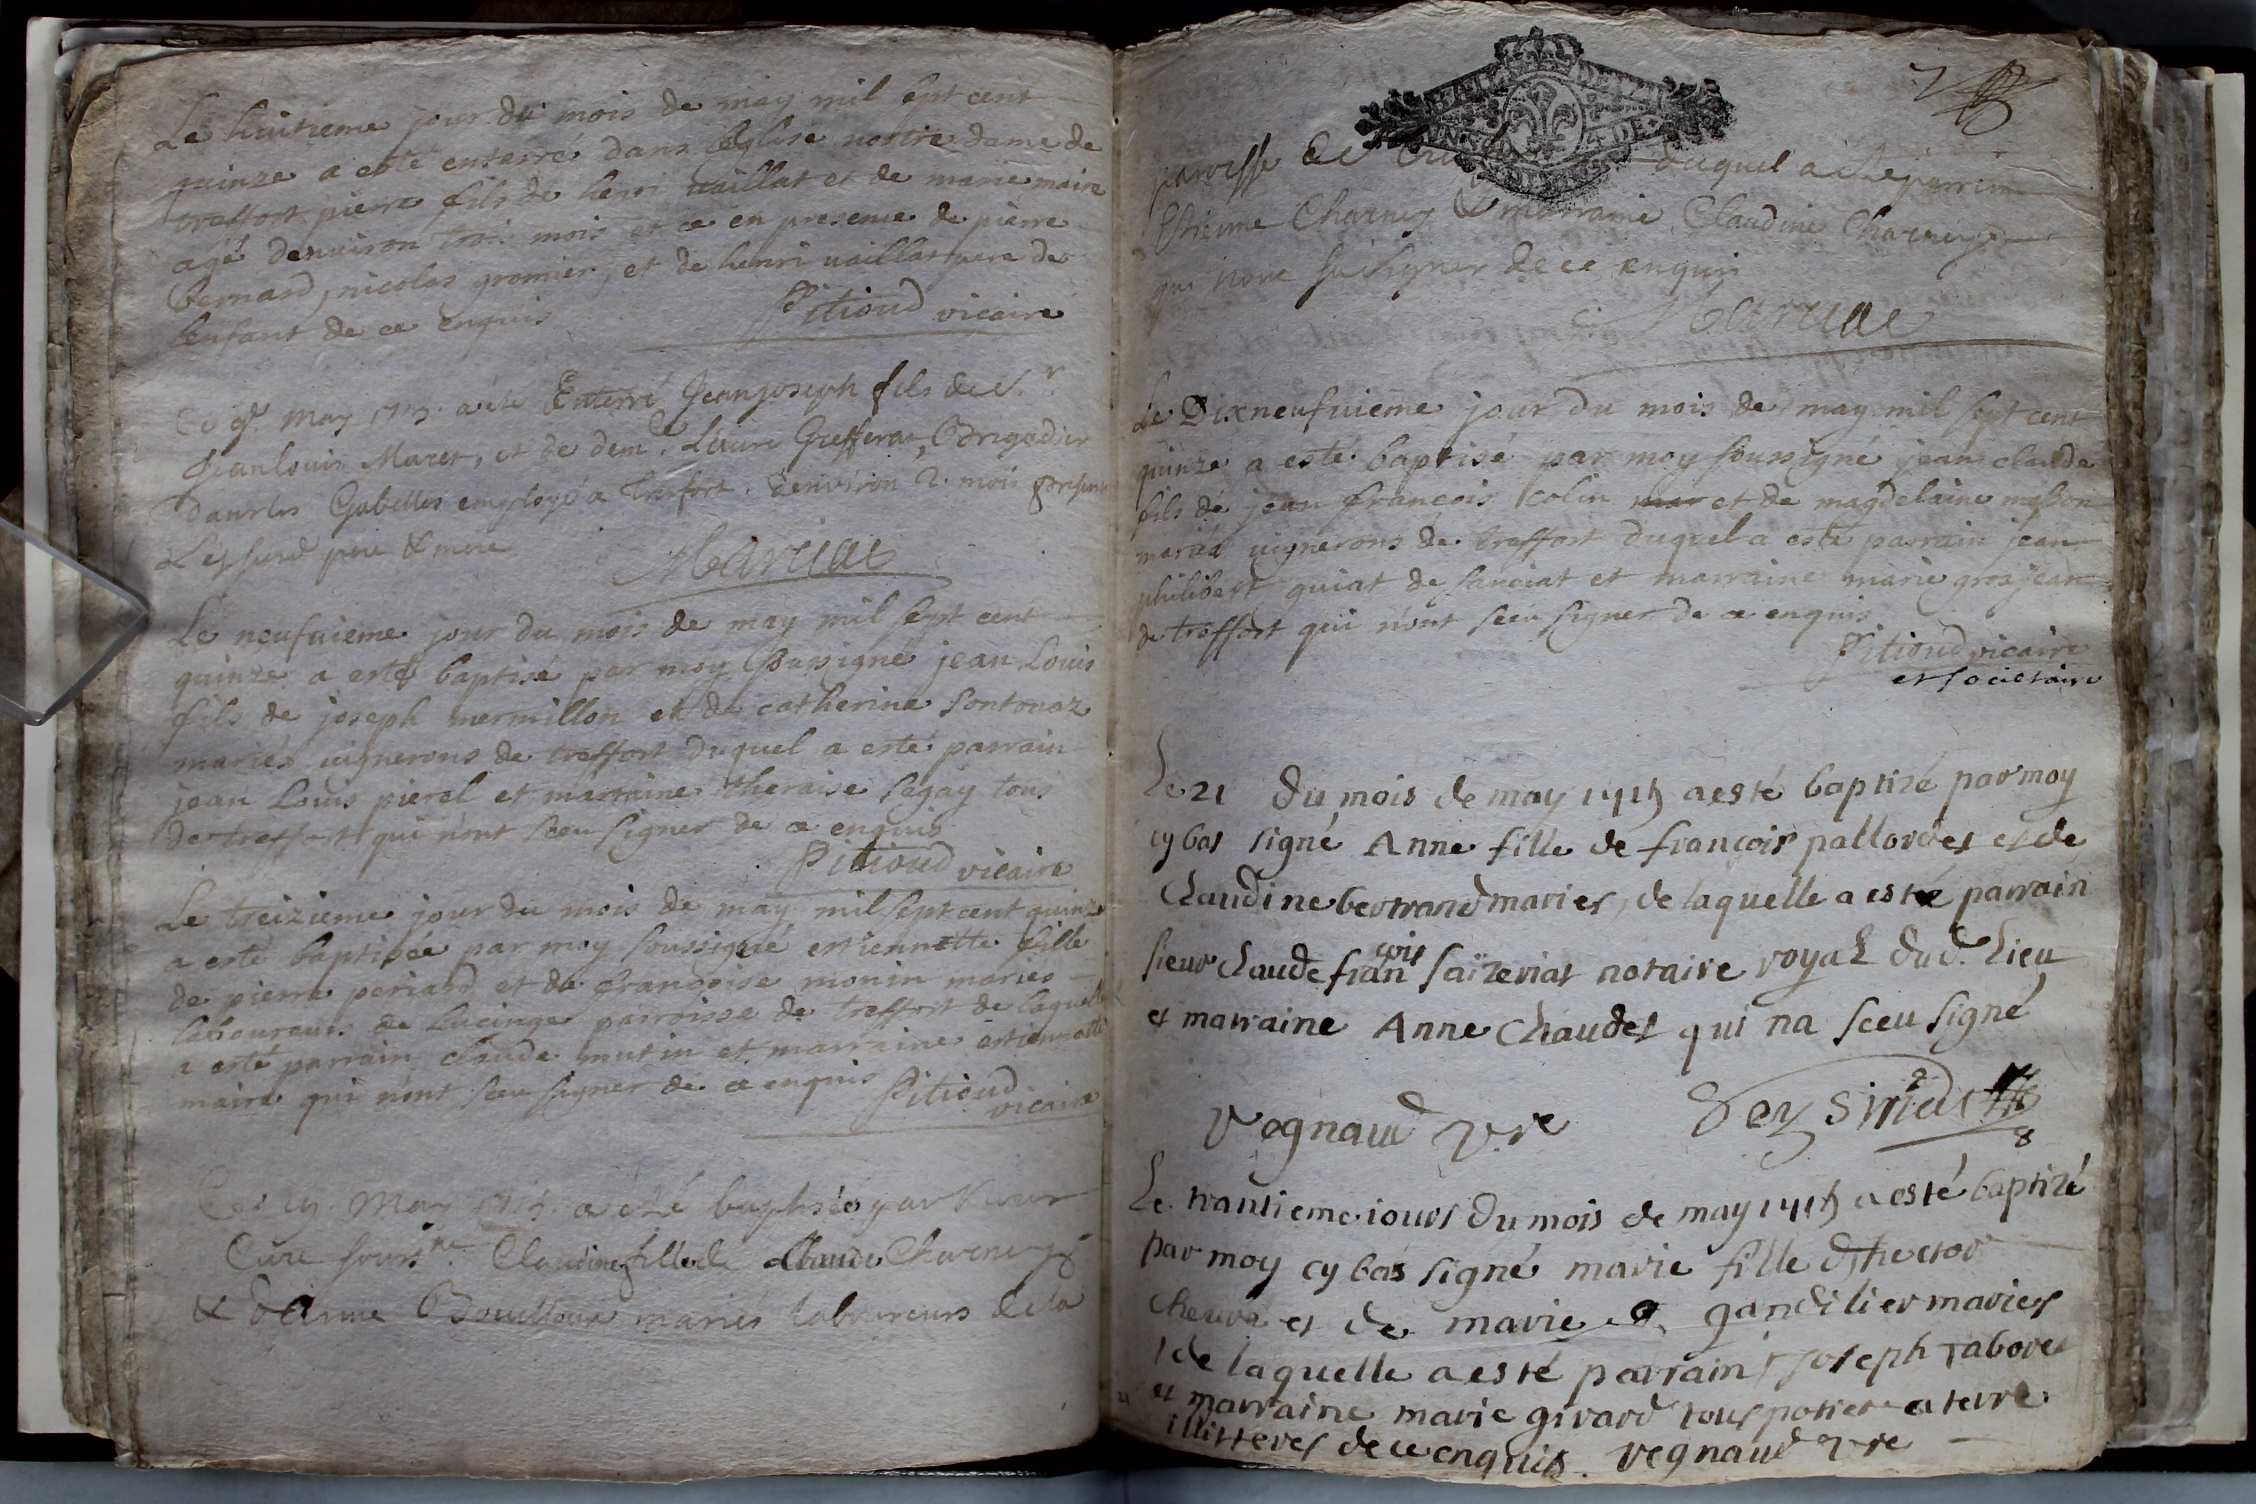 Le huitieme jour du mois de may mil sept cent
quinze a esté enterré dans l'eglise nostre dame de
treffort pierre fils de henri vaillat et de marie maire
agé d'enuiron trois mois et ce en presence de pierre
bernard, nicolas gromier, et de henri vaillat pere de
lenfant de ce enquis
Pitioud vicaire
Ce 9e may 1715 a été Enterré Jeanjoseph fils de Sr
Jeanlouis Maret, et de dem. Laure Grefferat, Brigadier
dans les Gabelles employé a Treffort. d'environ 2 mois presents
Lesusd pere & mere
Maruat
Le neufuieme jour du mois de may mil sept cent
quinze a esté baptisé par moy soussigné jean Louis
fils de joseph mermillon et de catherine sontonaz
mariés uignerons de treffort duquel a esté parrain
jean Louis pierel et marraine theraise segay tous
de treffort qui n'ont sceu signer de ce enquis
Pitioud vicaire
Le treizieme jour du mois de may mil sept cent quinze
a esté baptisée par moy soussigné estiennette fille
de pierre periard et de françoise monin mariés
laboureurs de Lucinge parroisse de treffort de laquelle
a esté parrain claude mutin et marraine estiennette
maire qui n'ont sceu signer de ce enquis Pitioud
vicaire
May 1715. a été baptisée par
Curé souss.né Claudine fille de Claude Charney
& d'Anne mariés laboureurs de la
paroisse duquel a été parrain
Etienne Charney & marraine Claudine Charney
qui n'ont su signer de ce enquis
Maruat
Le Dixneufuieme jour du mois de may mil sept cent
quinze a esté baptisé par moy soussigné jean claude
fils de jean francois colin et de magdelaine masson
mariés uignerons de treffort duquel a esté parrain jean
philibert guiat de sanciat et marraine marie grosjean
de treffort qui n'ont sceu signer de ce enquis
Pitioud vicaire
et societaire
Le 21 du mois de may 1715 a esté baptizé par moy
cy bas signé Anne fille de françois pallordet et de
Claudine bertrand maries, de laquelle a esté parrain
sieur Claude françois saïzeriat notaire royal dud. Lieu
et marraine Anne Chaudet qui na sceu signé
Vegnaud v.re
Le trantieme iours du mois de may 1715 a esté baptizé
par moy cy bas signé marie fille d'hector
cheura et de marie gandilier maries
de laquelle a esté parrain joseph tabouret
et marraine marie girard tous potier a terre
illitteres de ce enquis. Vegnaud v.re